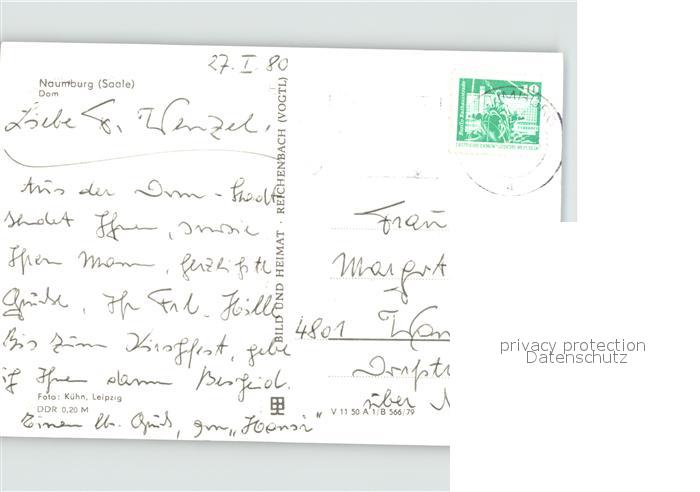 27. I. 80
Naumburg (Saale)
Dom
Liebe Fr. Wenzel.
Aus der Dom-Stadt
sendet Ihnen, sowie
Ihrem Mann, herzlichste
Grüße, Ihr Frl. Hölle
Bis zum Kirschfest, gebe
ich Ihnen dann Bescheid.
Foto: Kühn, Leipzig
DDR 0,20 M
Einen lb. Gruß, von „Hansi"
BILD UND HEIMAT · REICHENBACH (VOGTL)
V 11 50 A 1/B 566/79
10
Frau
Margot
4801
Dorfstr
über
privacy protection
Datenschutz